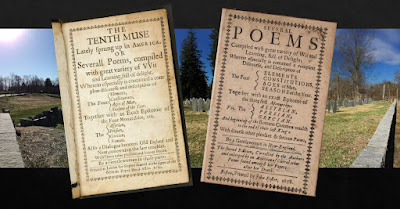 THE
TENTH MUSE
Lately sprung up in AMERICA.
OR
Severall Poems, compiled
with great variety of VVit
and Learning, full of delight.
Wherein especially is contained a com-
pleat discourse and description of
The Four
Elements,
Constitutions,
Ages of Man,
Seasons of the Year.
Together with an Exact Epitomie of
the Four Monarchies, viz.
The
Assyrian,
Persian,
Grecian,
Roman.
Also a Dialogue between Old England and
New, concerning the late troubles.
With divers other pleasant and serious Poems.
By a Gentlewoman in those parts.
SEVERAL
POEMS
Compiled with great variety of Wit and
Learning, full of Delight;
Wherein especially is contained a compleat
Discourse, and Description of
The Four
ELEMENTS
CONSTITUTIONS,
AGES of Man,
SEASONS of the Year.
Together with an exact Epitome of
the three first Monarchyes
Viz. The
ASSYRIAN,
PERSIAN,
GRECIAN.
With diverse other pleasant & serious Poems,
By a Gentlewoman in New-England.
Boston, Printed by John Foster, 1678.